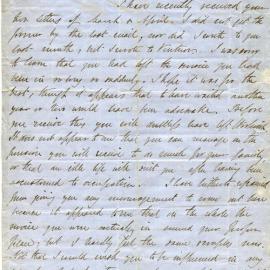 I have recently received your
two letters of March & April. I did not get the
former by the last mail, nor did I write to you
last month, but I wrote to
to learn that you had left the service you had
been in so long so suddenly. I hope it was for the
best, though it appears that to have waited another
year or two would have been advisable. Before
you receive this you will doubtless have left
It does not appear to me that you can manage on the
pension you will receive to do much for your family
or that an idle life will suit you after having been
accustomed to occupation. I have hitherto
from giving you any encouragement to come out here
because it appeared to me that on the whole the
service you were actually in
place, but I hardly feel the same scruples now.
Not that I would wish you to be influenced in any